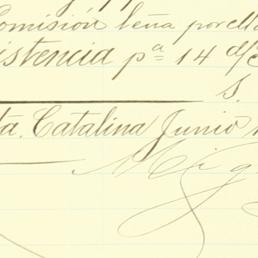 Comisión leña por
istencia pª 14 d/
S.
ta. Catalina Junio
Mig